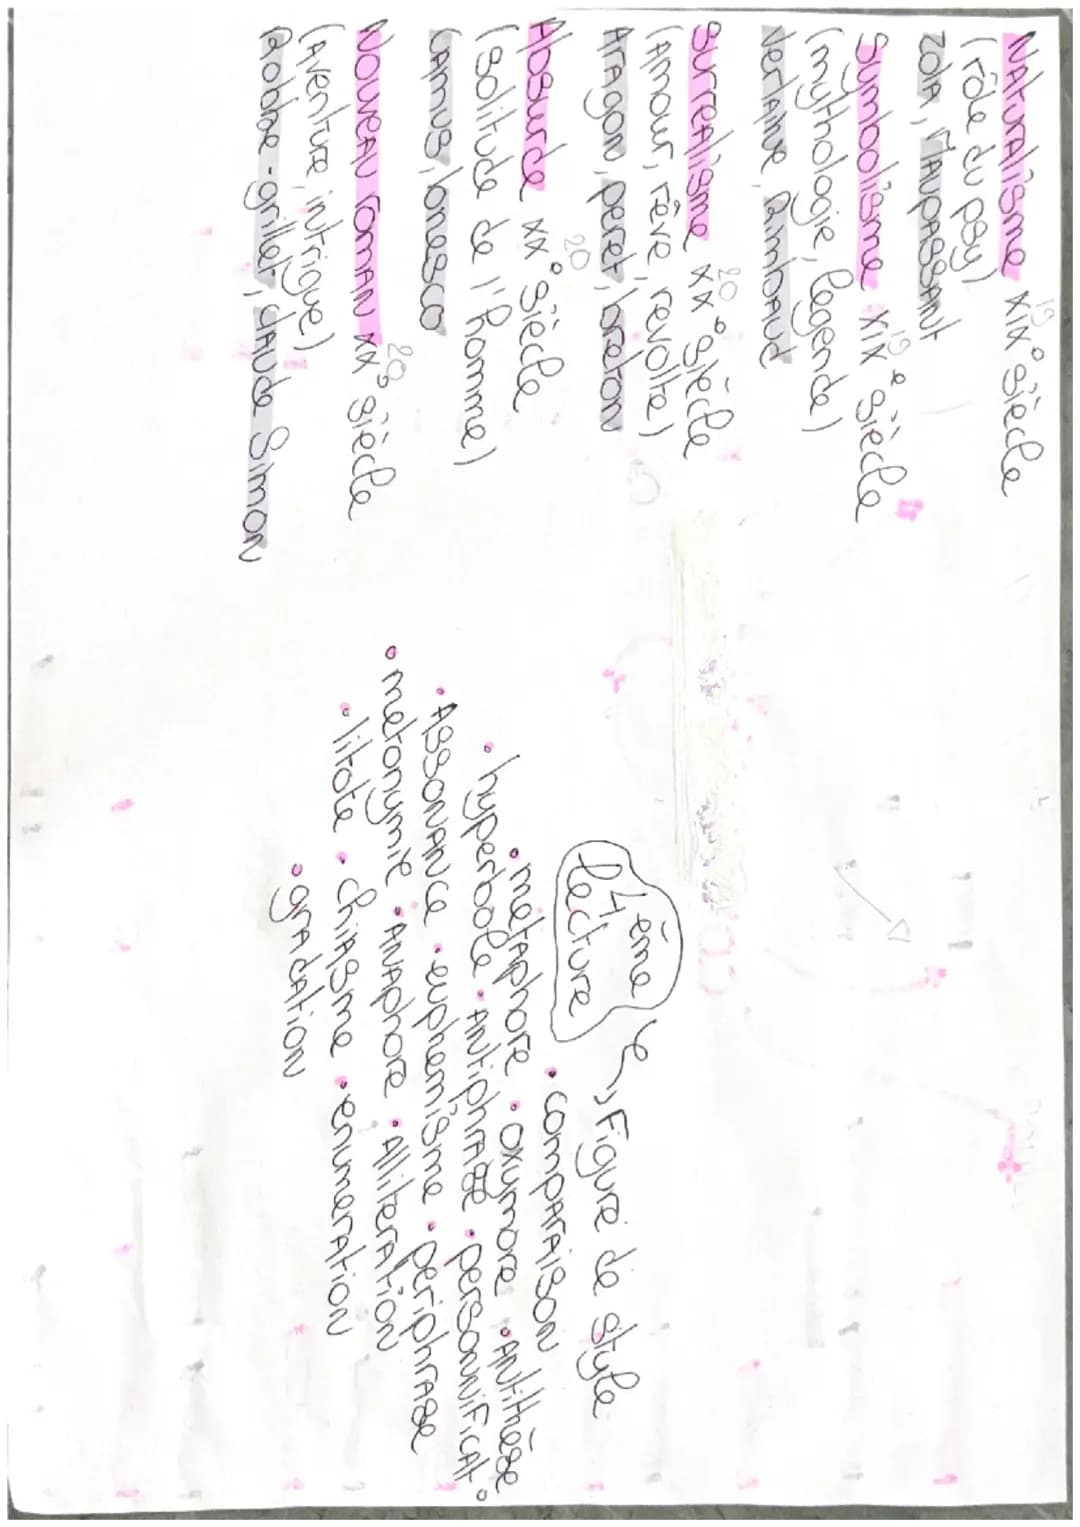 NATURALISME XIX° siècle
19
(rôle du psy)
ZOLA, MAUPASSANT
Symbolisme XIX e siècle
19
(mythologie, légende)
Verlaine, Rimbaud
Surréalisme XX° siècle
20
(Amour, rêve, révolte)
Aragon, peret, breton
Absurde XX° siècle
20
(solitude de l'homme)
Camus, ionesco
NOUVEAU ROMAN XX° siècle
20
(Aventure, intrigue)
Robbe-grillet, claude Simon
4 ème
lecture
Figure de style
• comparaison
• métaphore • oxymore • Antithèse
• hyperbole • Antiphrase • personnificat°
• Assonance • euphemisme • periphrase
• metonymie • ANAphore • Alliteration
• litote • chiasme • enumeration
• gradation